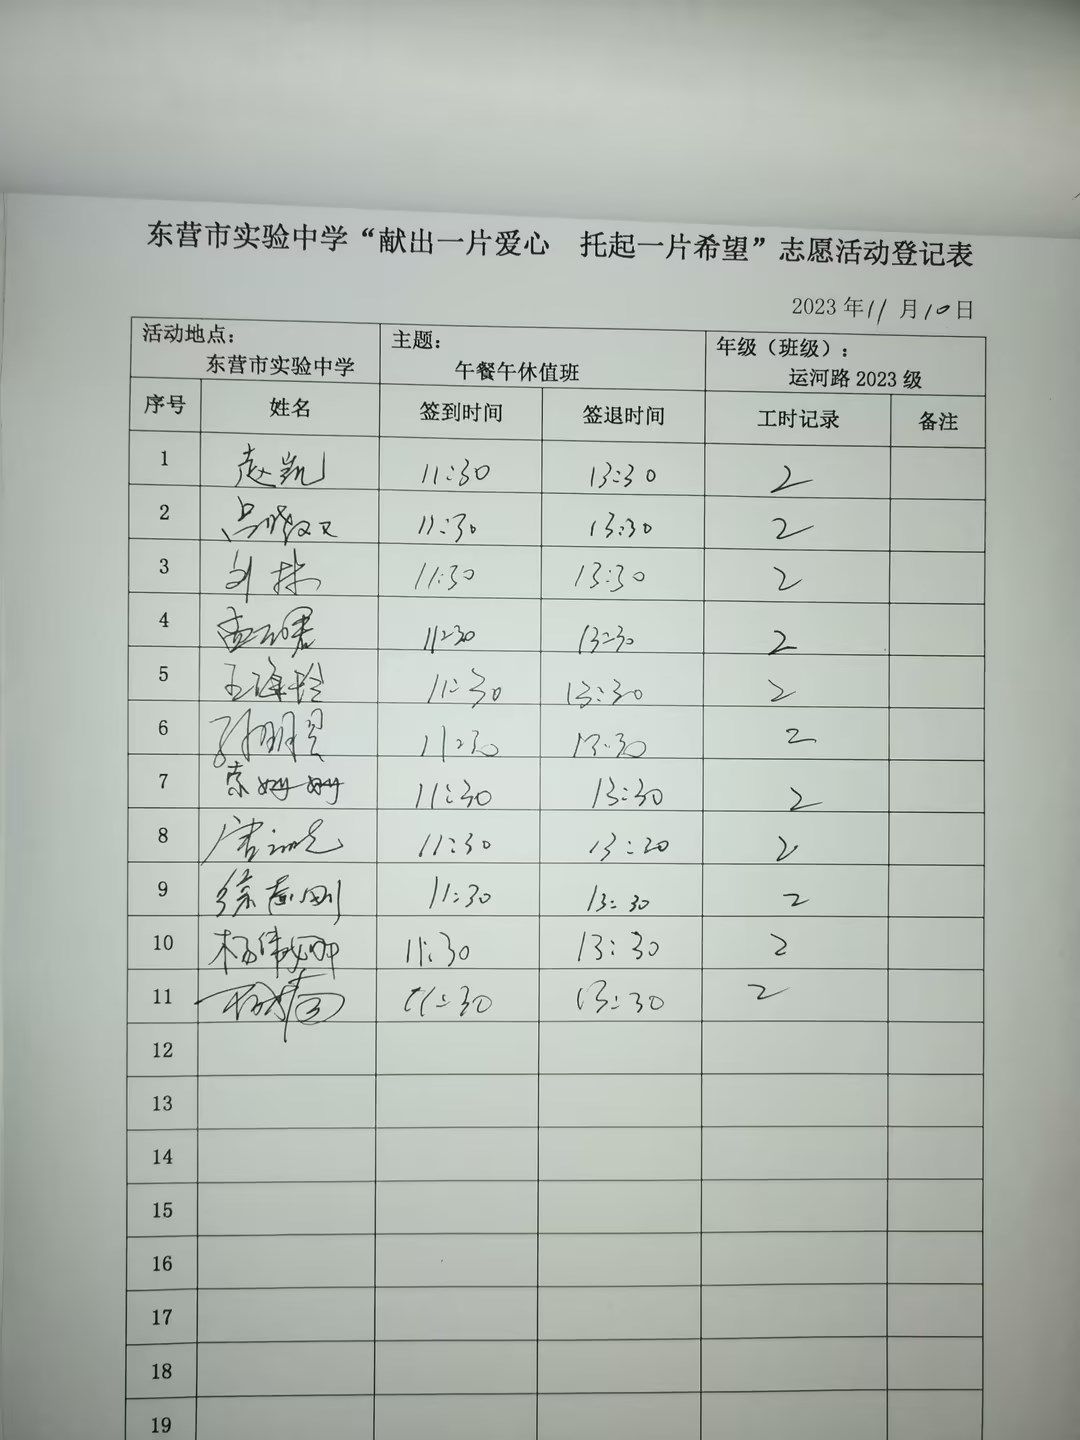 东营市实验中学“献出一片爱心 托起一片希望”志愿活动登记表
2023 年 11 月 10 日
活动地点： 主题： 年级（班级）：
东营市实验中学 午餐午休值班 运河路 2023 级
序号 姓名 签到时间 签退时间 工时记录 备注
1 赵凯 11:30 13:30 2
2 11:30 13:30 2
3 刘林 11:30 13:30 2
4 11:30 13:30 2
5 王海玲 11:30 13:30 2
6 孙明 11:30 13:30 2
7 索姗姗 11:30 13:30 2
8 唐 11:30 13:20 2
9 徐志刚 11:30 13:30 2
10 杨伟娜 11:30 13:30 2
11 11:30 13:30 2
12
13
14
15
16
17
18
19